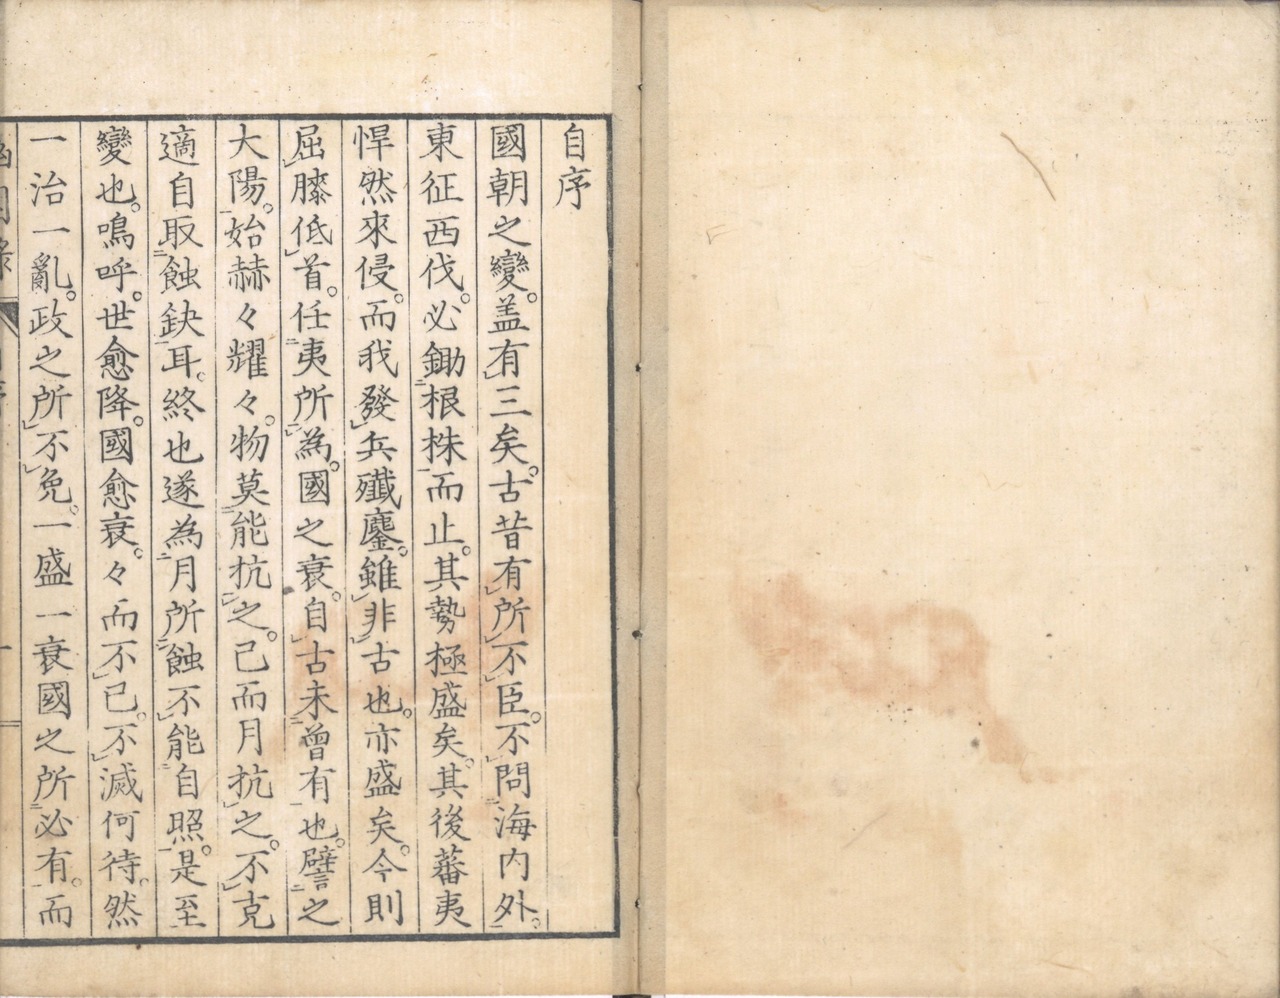 自序
國朝之變。盖有三矣。古昔有所不臣。不問海内外。
東征西伐。必鋤根株而止。其勢極盛矣。其後蕃夷
悍然來侵。而我發兵殲鏖。雖非古也。亦盛矣。今則
屈膝低首。任夷所為。國之衰。自古未曾有也。譬之
大陽。始赫々耀々。物莫能抗之。已而月抗之。不克
適自取蝕缺耳。終也遂為月所蝕不能自照。是至
變也。鳴呼。世愈降。國愈衰。々而不已。不滅何待。然
一治一亂。政之所不免。一盛一衰國之所必有。而